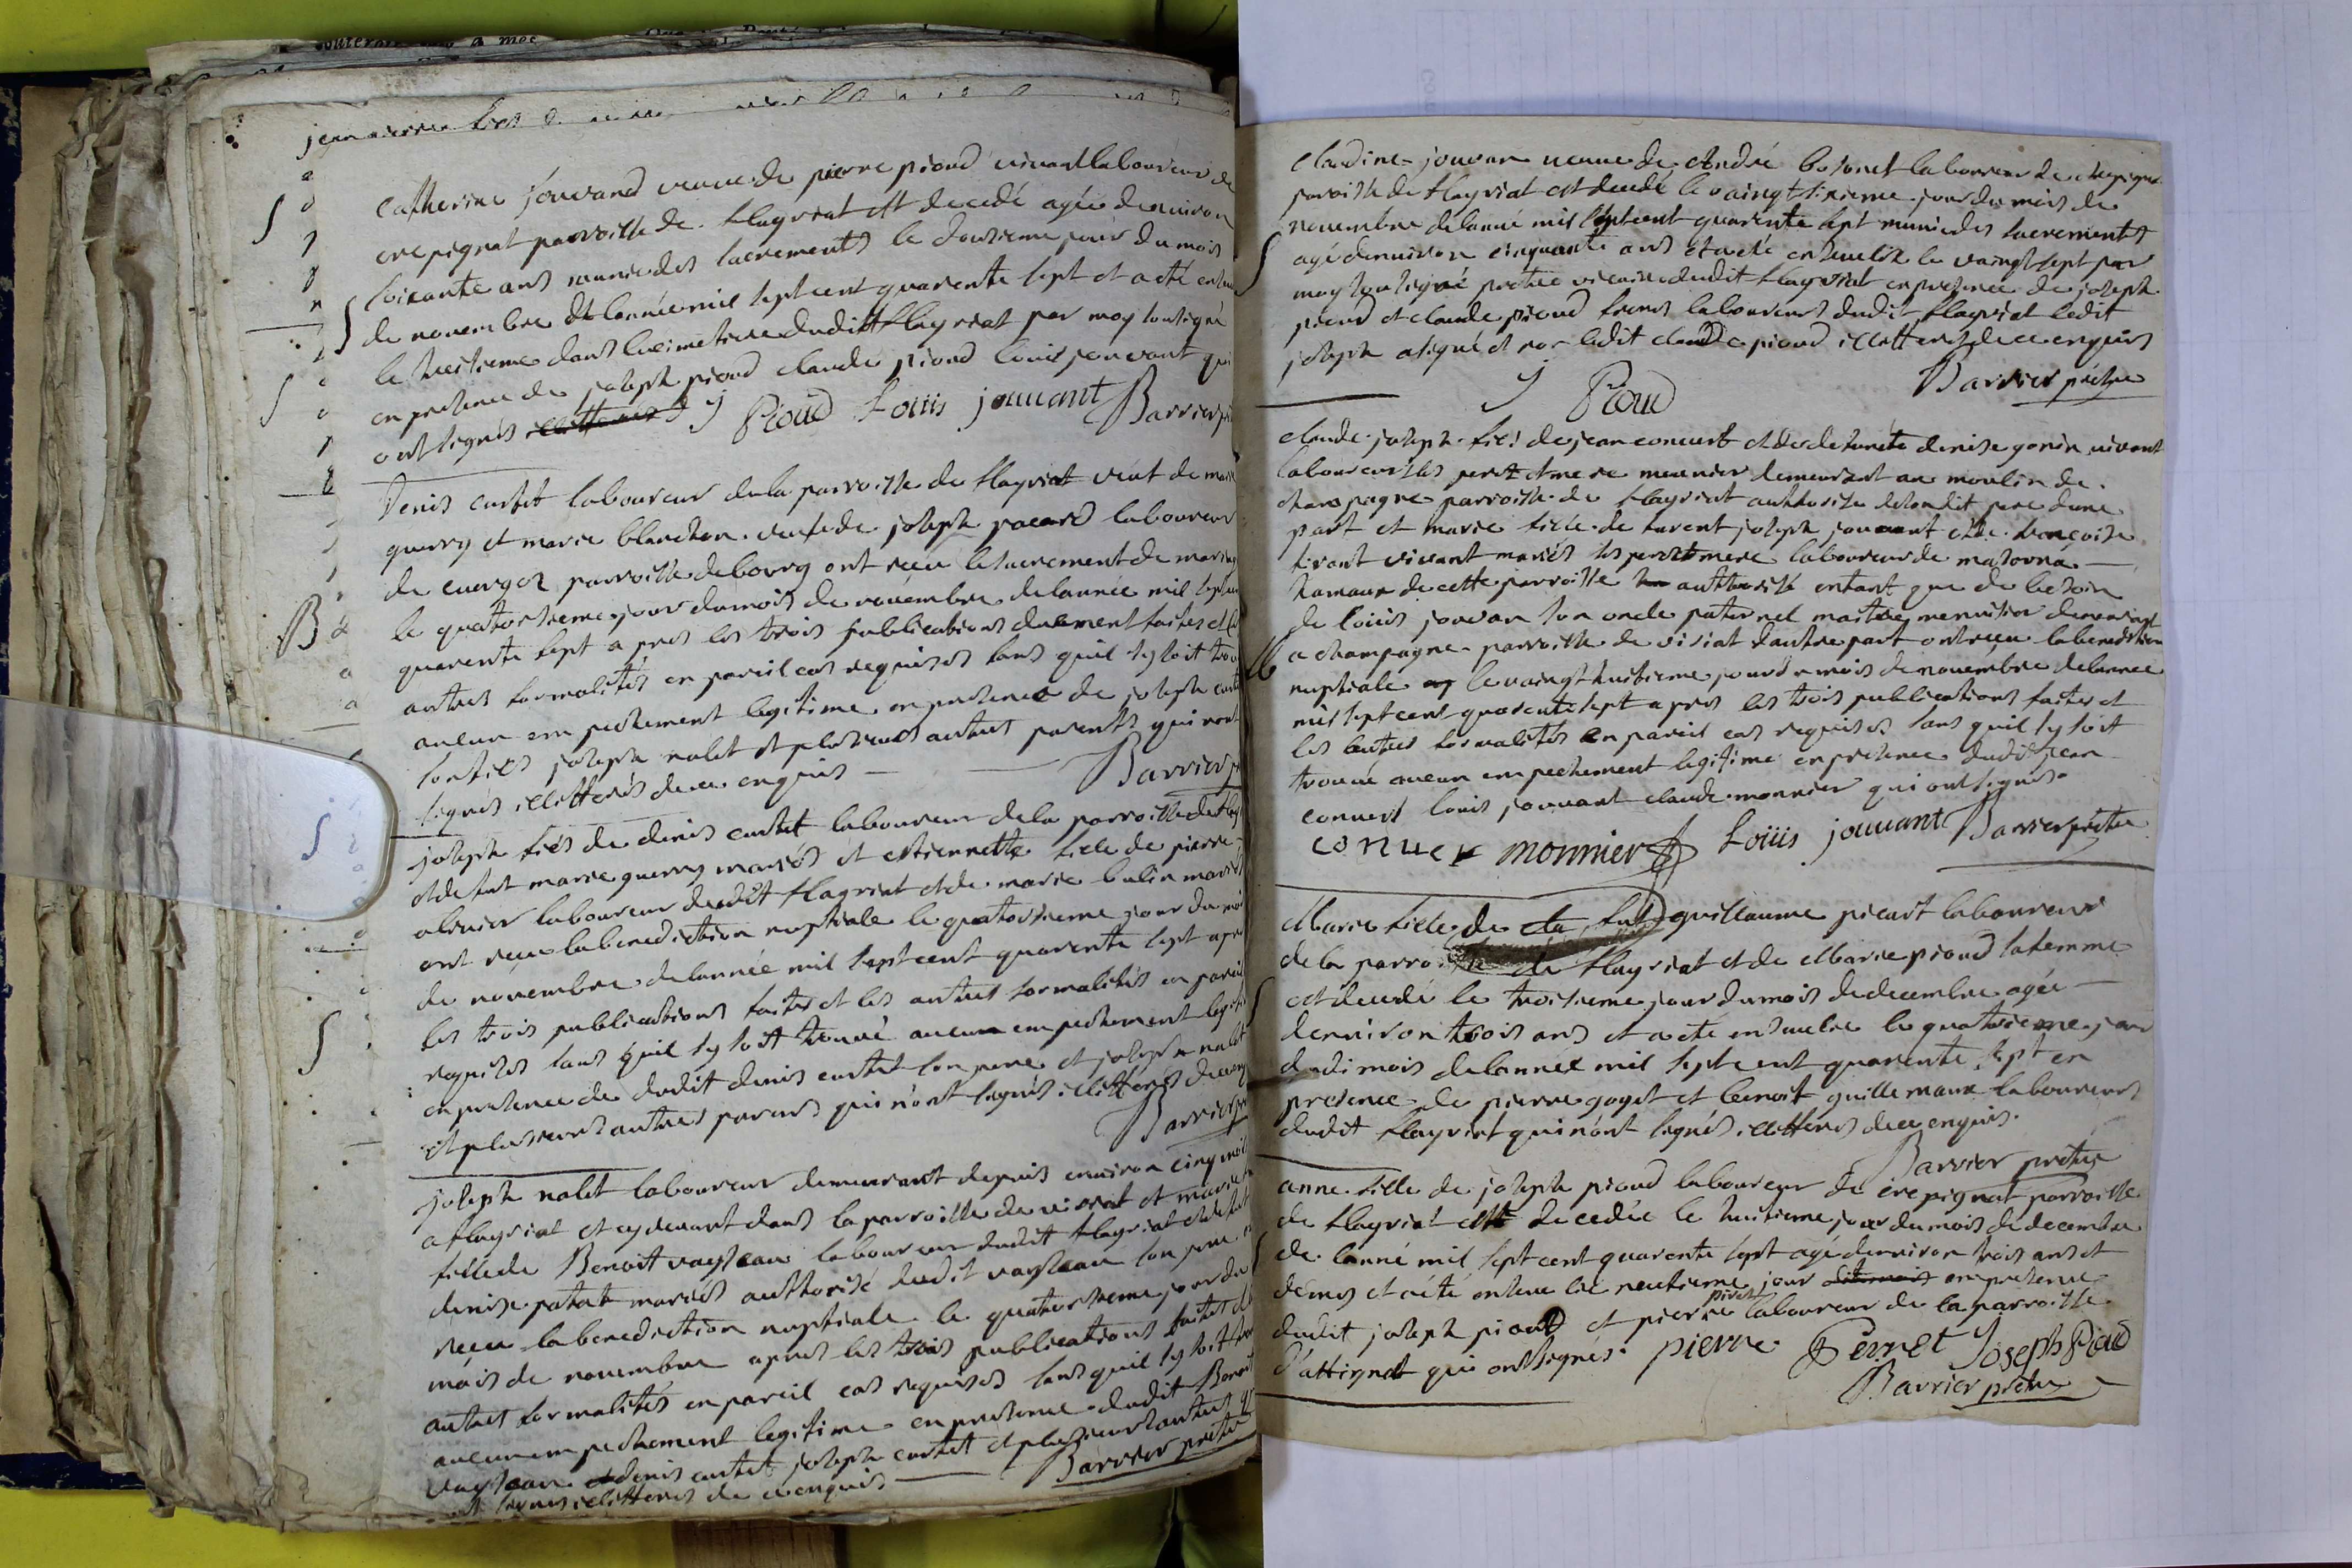 Catherine jouvand veuve de pierre pioud vivant laboureur de
crepignat parroisse de flayriat est decedé agée denviron
soixante ans munie des sacrements le douzieme jour du mois
de novembre de lannée mil sept cent quarente sept et a eté
le dans le cimetiere dudit flayriat par moy soussigné
en presence de joseph pioud claude pioud louis jouvant qui
ont signés
J Pioud Louis jouuant Barrier
Denis curtet laboureur de la parroisse de flayriat veuf de marie
guerry et marie blanchon veufe de joseph pacard laboureur
de cuergot parroisse de bourg ont receu le sacrement de mariage
le quatorzieme jour du mois de novembre de lannée mil sept
quarente sept apres les trois publications duement faites et
autres formalités en pareil cas requises sans quil sy soit
aucun empechement legitime en presence de joseph
son fils joseph nalet et plusieurs autres parents qui nont
signés illettrés de ce enquis
Barrier
joseph fils de denis curtet laboureur de la parroisse de
et de fut marie guerry mariés et estiennette fille de pierre
olivier laboureur dudit flayriat et de marie bulin mariés
ont receu la benediction nuptiale le quatorzieme jour du
de novembre de lannée mil sept cent quarente sept apres
les trois publications faites et les autres formalités en pareil
requises sans quil sy soit trouvé aucun empechement
en presence de dudit denis curtet son pere et joseph nalet
et plusieurs autres parens qui n'ont signés illettrés
Barrier
joseph nalet laboureur demeurant depuis environ cinq
a flayriat et cy devant dans la parroisse de et marie
fille de Benoit vaysseau laboureur dudit flayriat et de
denise patat mariés authorisé dudit vaysseau son pere
receu la benediction nuptiale le quatorzieme jour du
mois de novembre apres les trois publications faites
autres formalités en pareil cas requises sans quil sy soit
aucun empechement legitime en presence dudit Benoit
vaysseau denis curtet joseph curtet et plusieurs autres
signés illettrés de ce enquis
Barrier pretre
Claudine jouvan veuve de André bosonet laboureur de
parroisse de flayriat est decedé le vaingt sixieme jour du mois de
novembre de lanné mil sept cent quarente sept munie des sacrements
agé denviron cinquante ans et a eté ensevelie le vaingt sept par
moy soussigné pretre vicaire dudit flayriat en presence de joseph
pioud et claude pioud freres laboureurs dudit flayriat ledit
joseph a signé et non ledit claude pioud illettré de ce enquis
J Pioud Barrier prêtre
claude joseph fils de jean convert et de defunte denise gonin vivant
laboureur ses pere et mere meunier demeurant au moulin de
champagne parroisse de flayriat authorisé de sondit pere dune
part et marie fille de furent joseph jouvant et de françoise
tirant vivant mariés ses pere et mere laboureur de masorna
hamaux de cette parroisse authorisé entant que de besoin
de louis jouvan son oncle paternel maitre menuisier demeurant
a champagne parroisse de visiat dautre part ont receu la benediction
nuptiale le vaingt huitieme jour du mois de novembre de lannee
mil sept cent quarente sept apres les trois publications faites et
les autres formalités en pareil cas requises sans quil sy soit
trouvé aucun empechement legitime en presence dudit jean
convert louis jouvant claude monnier qui ont signés
conuer monnier Louis jouuant Barrier prêtre
Marie fille de guillaume picart laboureur
de la parroisse de flayriat et de Marie pioud sa femme
est decedé le troisieme jour du mois de decembre agée
denviron trois ans et a eté ensevelie le quatrieme jour
dudi mois de lannée mil sept cent quarente sept en
presence de pierre goget et benoit guillemaux laboureurs
dudit flayriat qui n'ont signés illettrés de ce enquis.
Barrier pretre
anne fille de joseph pioud laboureur de crepignat parroisse
de flayriat est decedée le huitieme jour du mois de decembre
de lanné mil sept cent quarente sept agé denviron trois ans et
demis et a été le neufieme jour en presence
dudit joseph pioud et pierre laboureur de la parroisse
d'attignat qui ont signés. pierre Perret Joseph Pioud
Barrier pretre